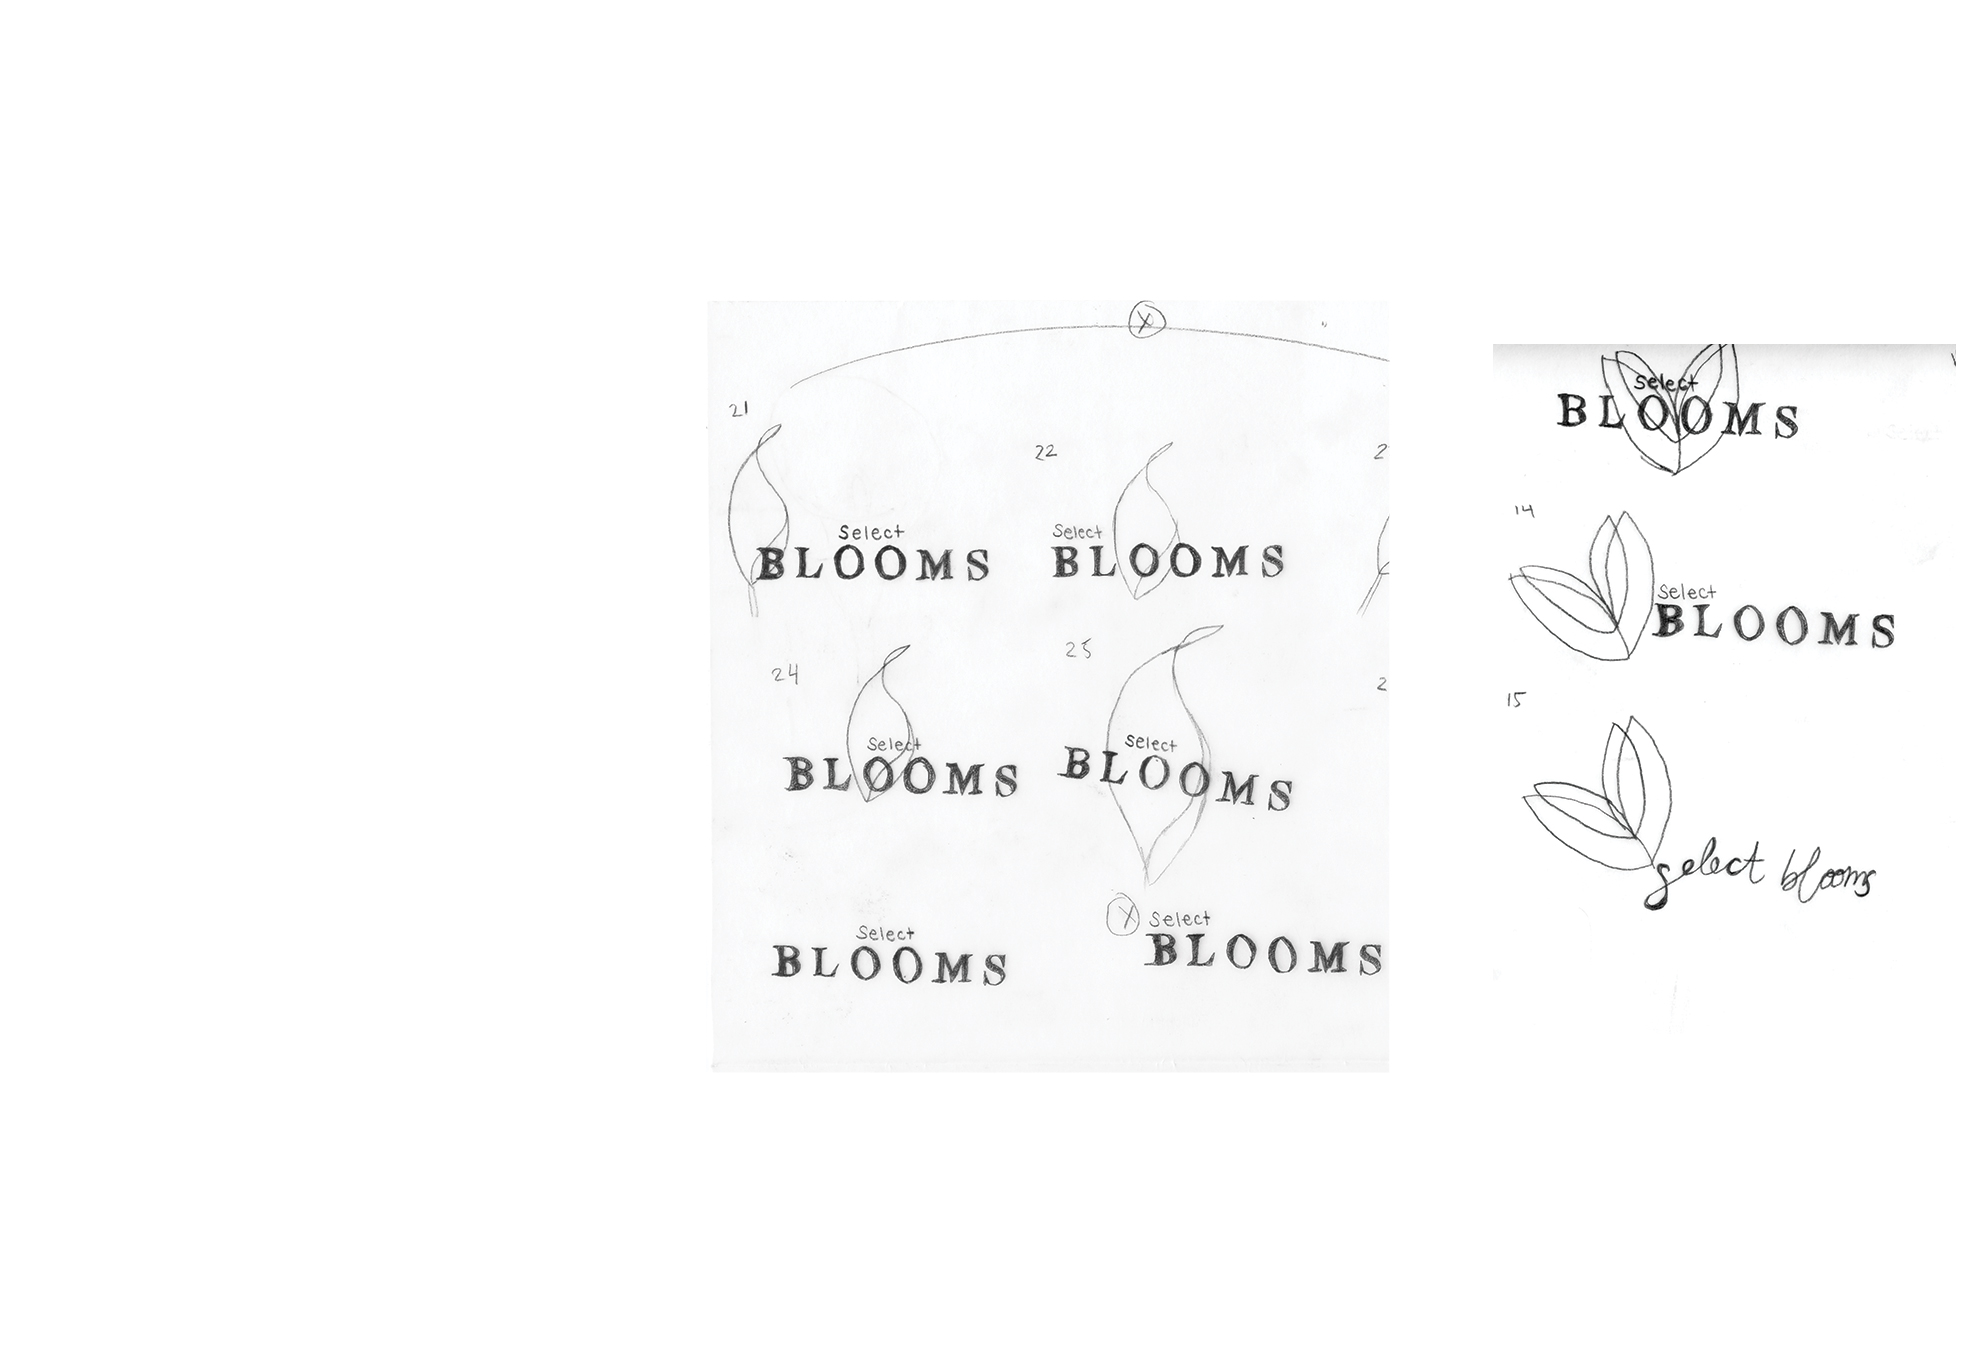 X
21
Select
BLOOMS
22
Select
BLOOMS
2
24
Select
BLOOMS
25
Select
BLOOMS
2
Select
BLOOMS
X
Select
BLOOMS
Select
BLOOMS
14
Select
BLOOMS
15
select blooms